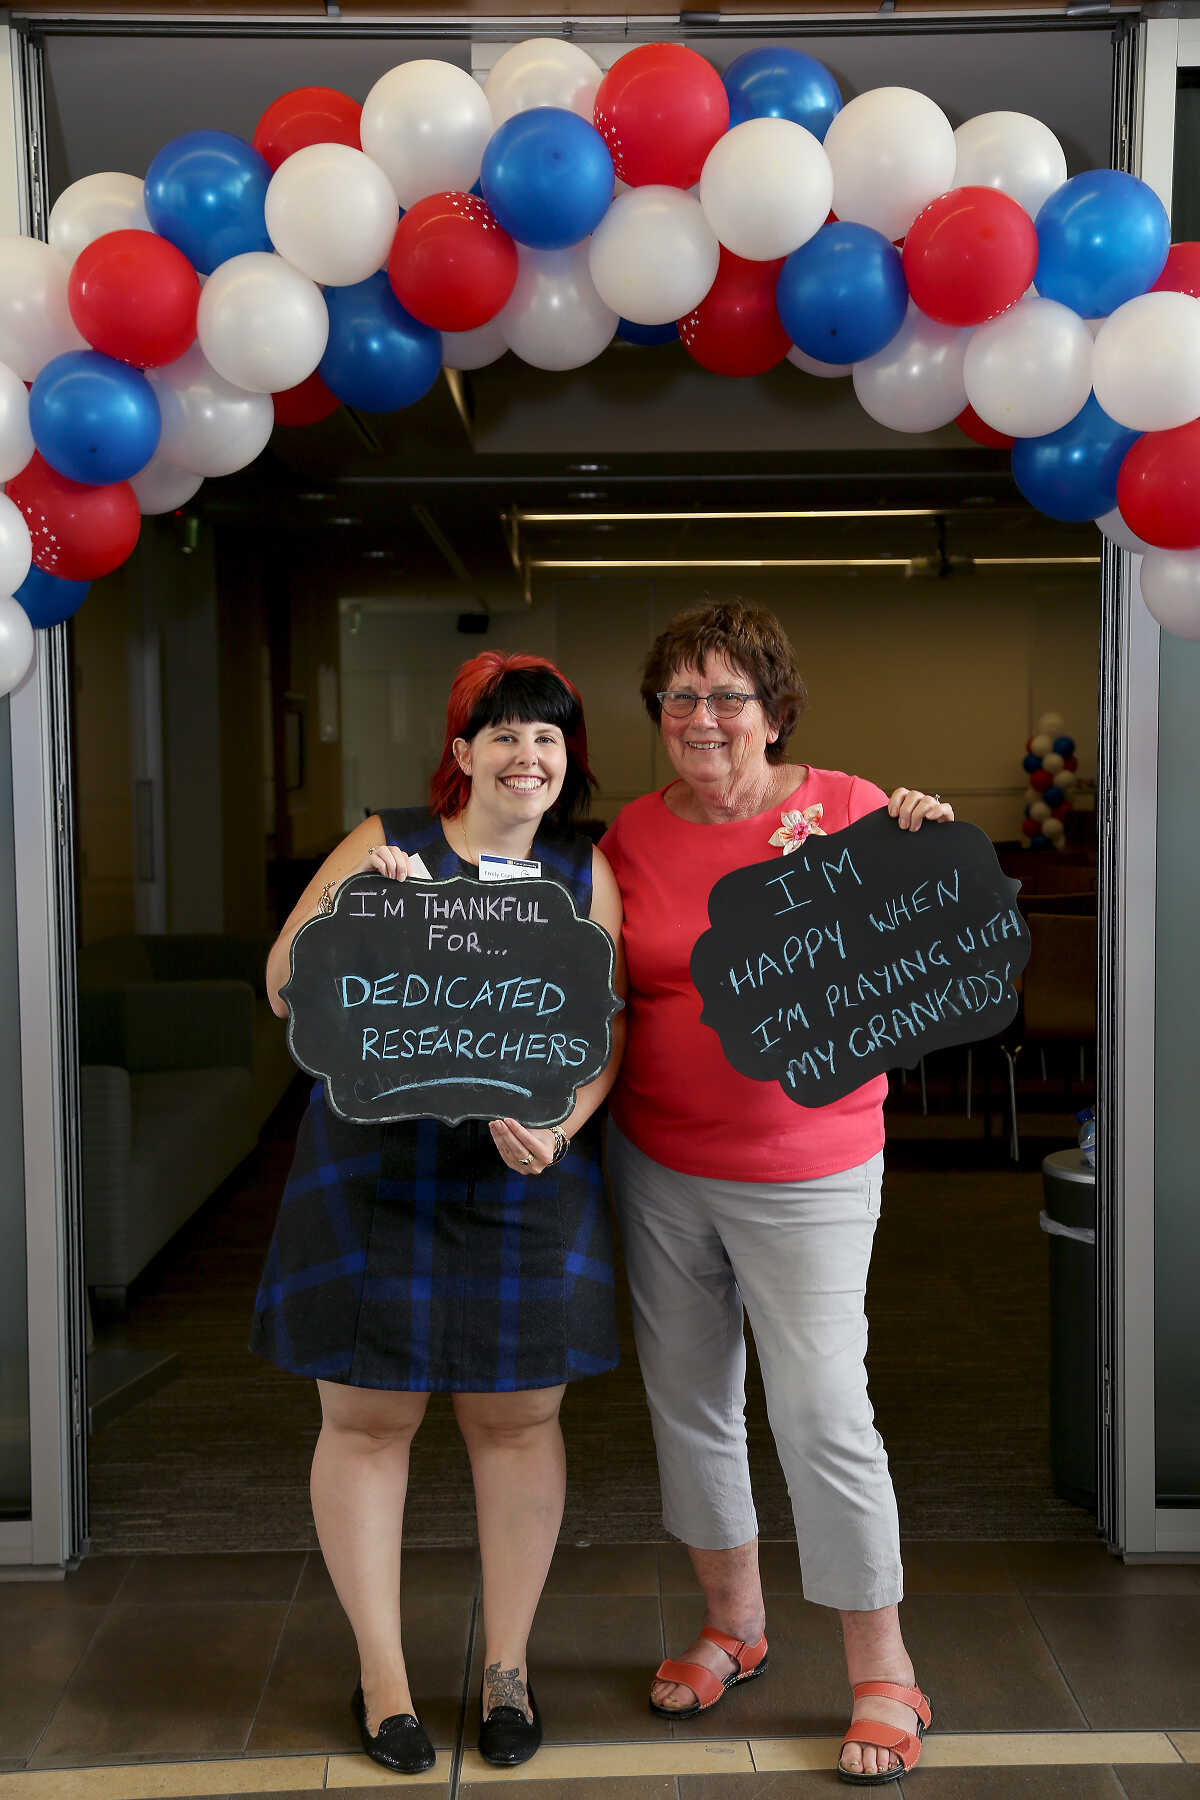 I'M THANKFUL
FOR...
DEDICATED
RESEARCHERS
I'M
HAPPY WHEN
I'M PLAYING WITH
MY GRANKIDS!
Emily